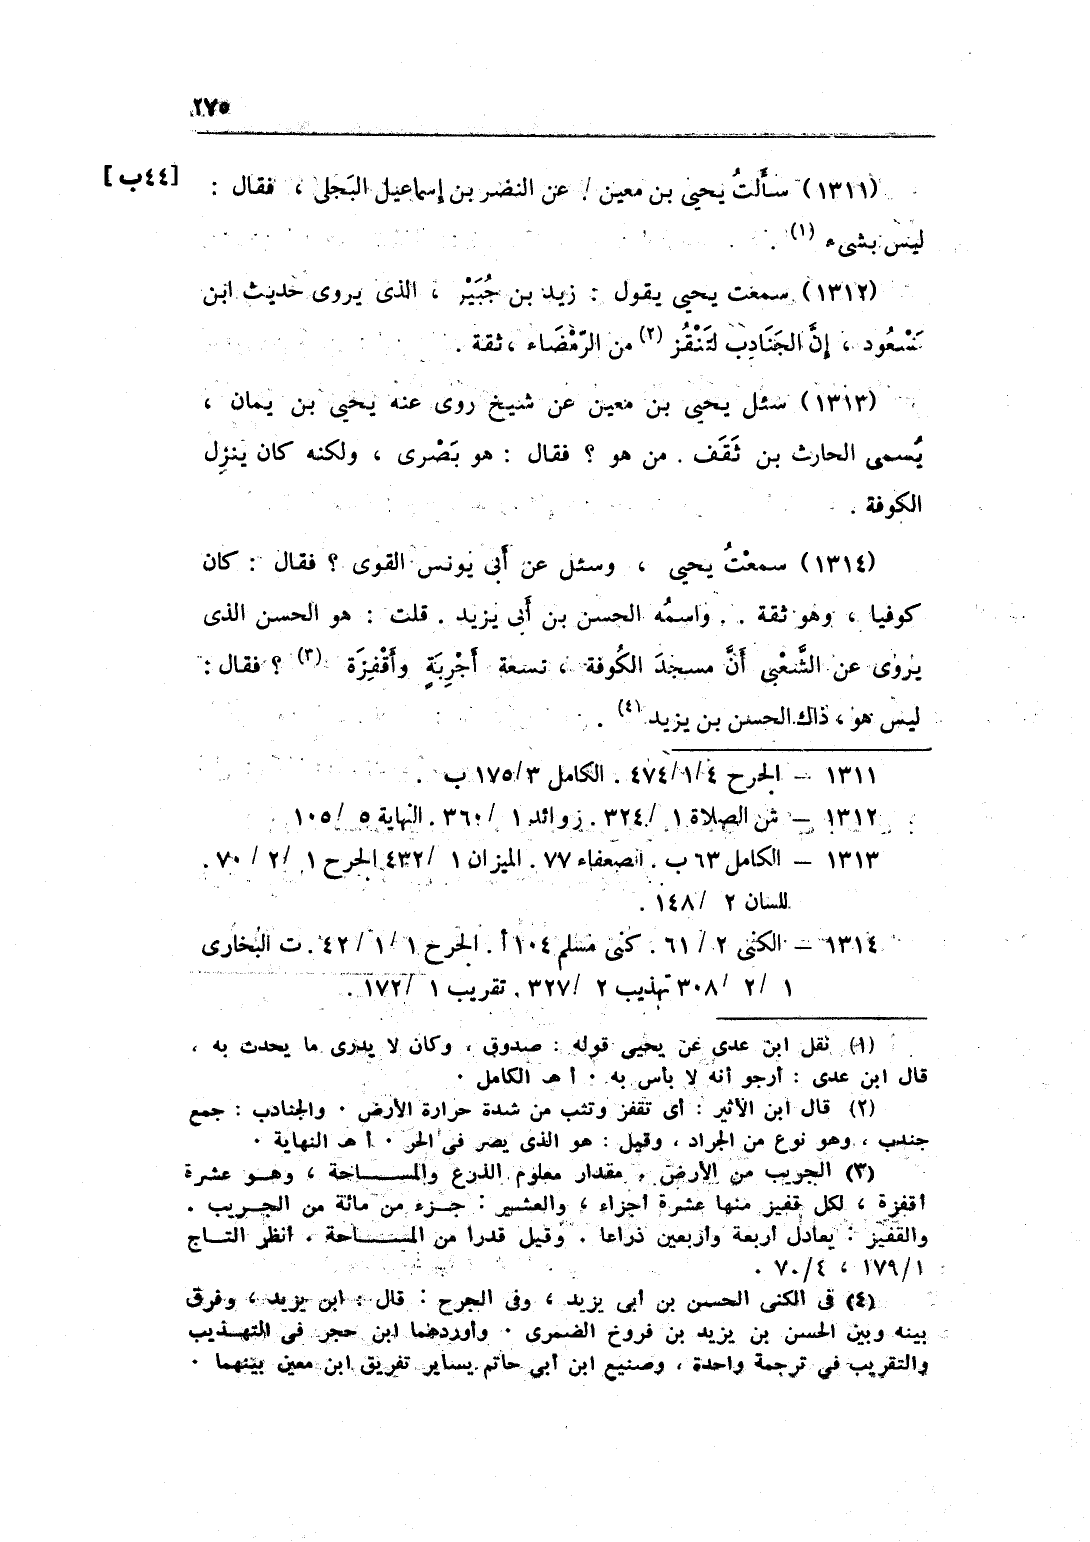 ٢٧٥
[٤٤ب]
(١٣١١) سأَلتُ يحيى بن معين / عن النضر بن إسماعيل البَجلى ، فقال :
ليس بشىء (١) .
(١٣١٢) سمعت يحيى يقول : زيد بن جُبَيْر ، الذى يروى حديث ابن
مَسْعُود ، إنَّ الجَنَادِبَ لتَنْقُز (٢) من الرّمْضَاء ، ثقة .
(١٣١٣) سئل يحيى بن معين عن شيخ روى عنه يحيى بن يمان ،
يُسمى الحارث بن ثَقَف . من هو ؟ فقال : هو بَصْرى ، ولكنه كان ينزِل
الكوفة .
(١٣١٤) سمعْتُ يحيى ، وسئل عن أَبى يونس القوى ؟ فقال : كان
كوفيا ، وهو ثقة . واسمُه الحسن بن أَبى يزيد . قلت : هو الحسن الذى
يروى عن الشَّعْبى أَنَّ مسجدَ الكُوفة ، تسعة أَجْرِبَةٍ وأَقْفِزَة (٣) ؟ فقال :
ليس هو ، ذاك الحسن بن يزيد (٤) .
١٣١١ – الجرح ٤٧٤/١/٤ . الكامل ١٧٥/٣ ب .
١٣١٢ – ش الصلاة ١ /٣٢٤ . زوائد ١ /٣٦٠ . النهاية ٥ /١٠٥ .
١٣١٣ – الكامل ٦٣ ب . الضعفاء ٧٧ . الميزان ١ /٤٣٢ الجرح ١ /٢ /٧٠ .
للسان ٢ /١٤٨ .
١٣١٤ – الكنى ٢ /٦١ . كنى مسلم ١٠٤ أ . الجرح ١ /١ /٤٢ . ت البخارى
١ /٢ /٣٠٨ تهذيب ٢ /٣٢٧ . تقريب ١ /١٧٢ .
(١) نقل ابن عدى عن يحيى قوله : صدوق ، وكان لا يدرى ما يحدث به ،
قال ابن عدى : أرجو أنه لا بأس به . أ هـ الكامل .
(٢) قال ابن الأثير : أى تقفز وتثب من شدة حرارة الأرض . والجنادب : جمع
جندب ، وهو نوع من الجراد ، وقيل : هو الذى يصر فى الحر . أ هـ النهاية .
(٣) الجريب من الأرض ، مقدار معلوم الذرع والمساحة ، وهو عشرة
أقفزة ، لكل قفيز منها عشرة أجزاء ، والعشير : جزء من مائة من الجريب .
والقفيز : يعادل أربعة وأربعين ذراعا . وقيل قدرا من المساحة ، أنظر التاج
١٧٩/١ ، ٧٠/٤ .
(٤) فى الكنى الحسن بن أبى يزيد ، وفى الجرح : قال : ابن يزيد ، وفرق
بينه وبين الحسن بن يزيد بن فروخ الضمرى . وأوردهما ابن حجر فى التهذيب
والتقريب فى ترجمة واحدة ، وصنيع ابن أبى حاتم يساير تفريق ابن معين بينهما .